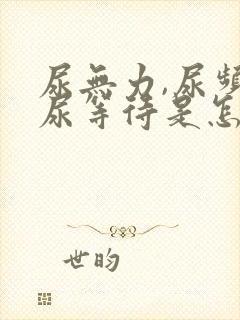 尿無力,尿頻
尿等待是怎
世昀